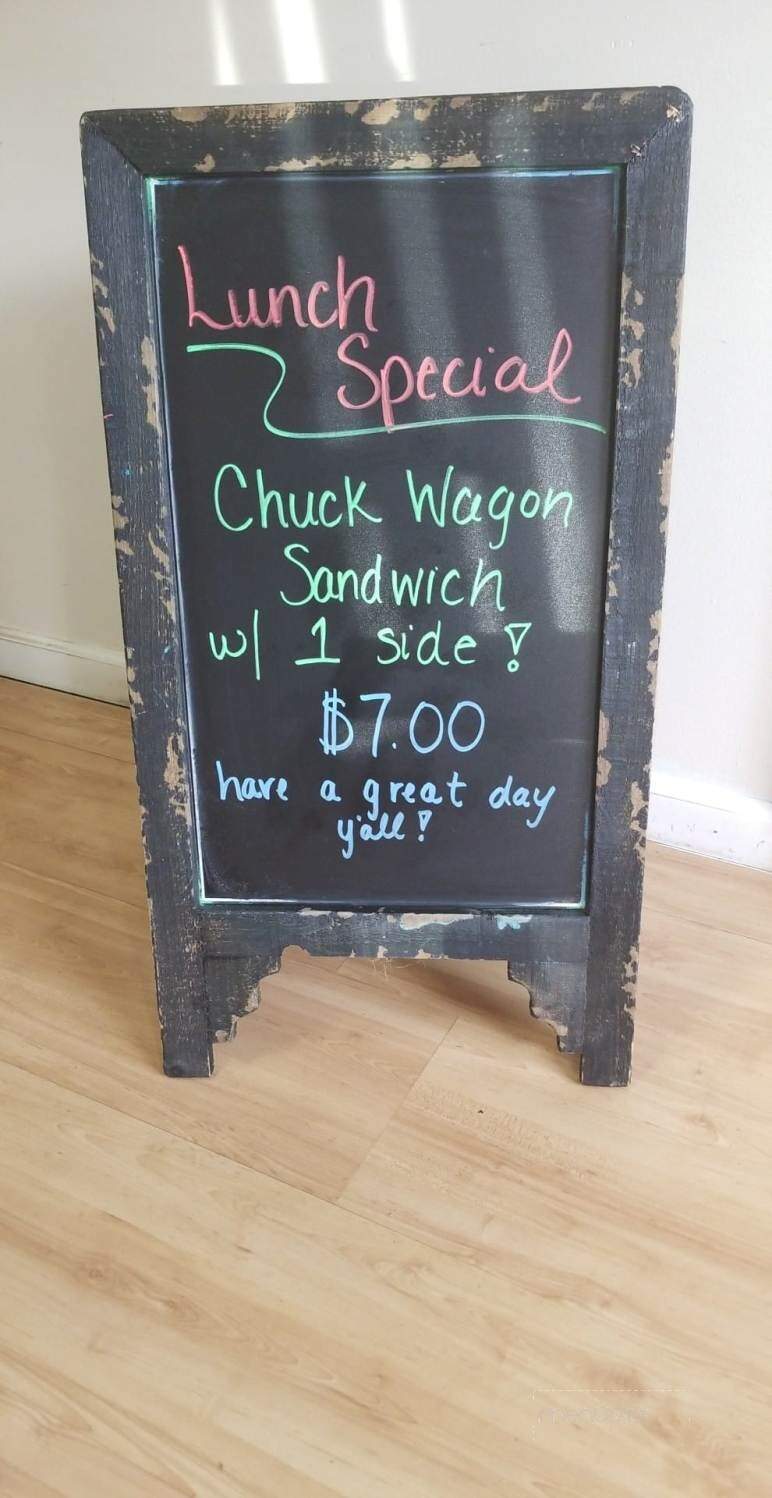 Lunch
Special
Chuck Wagon
Sandwich
w/ 1 side!
$7.00
have a great day
y'all!